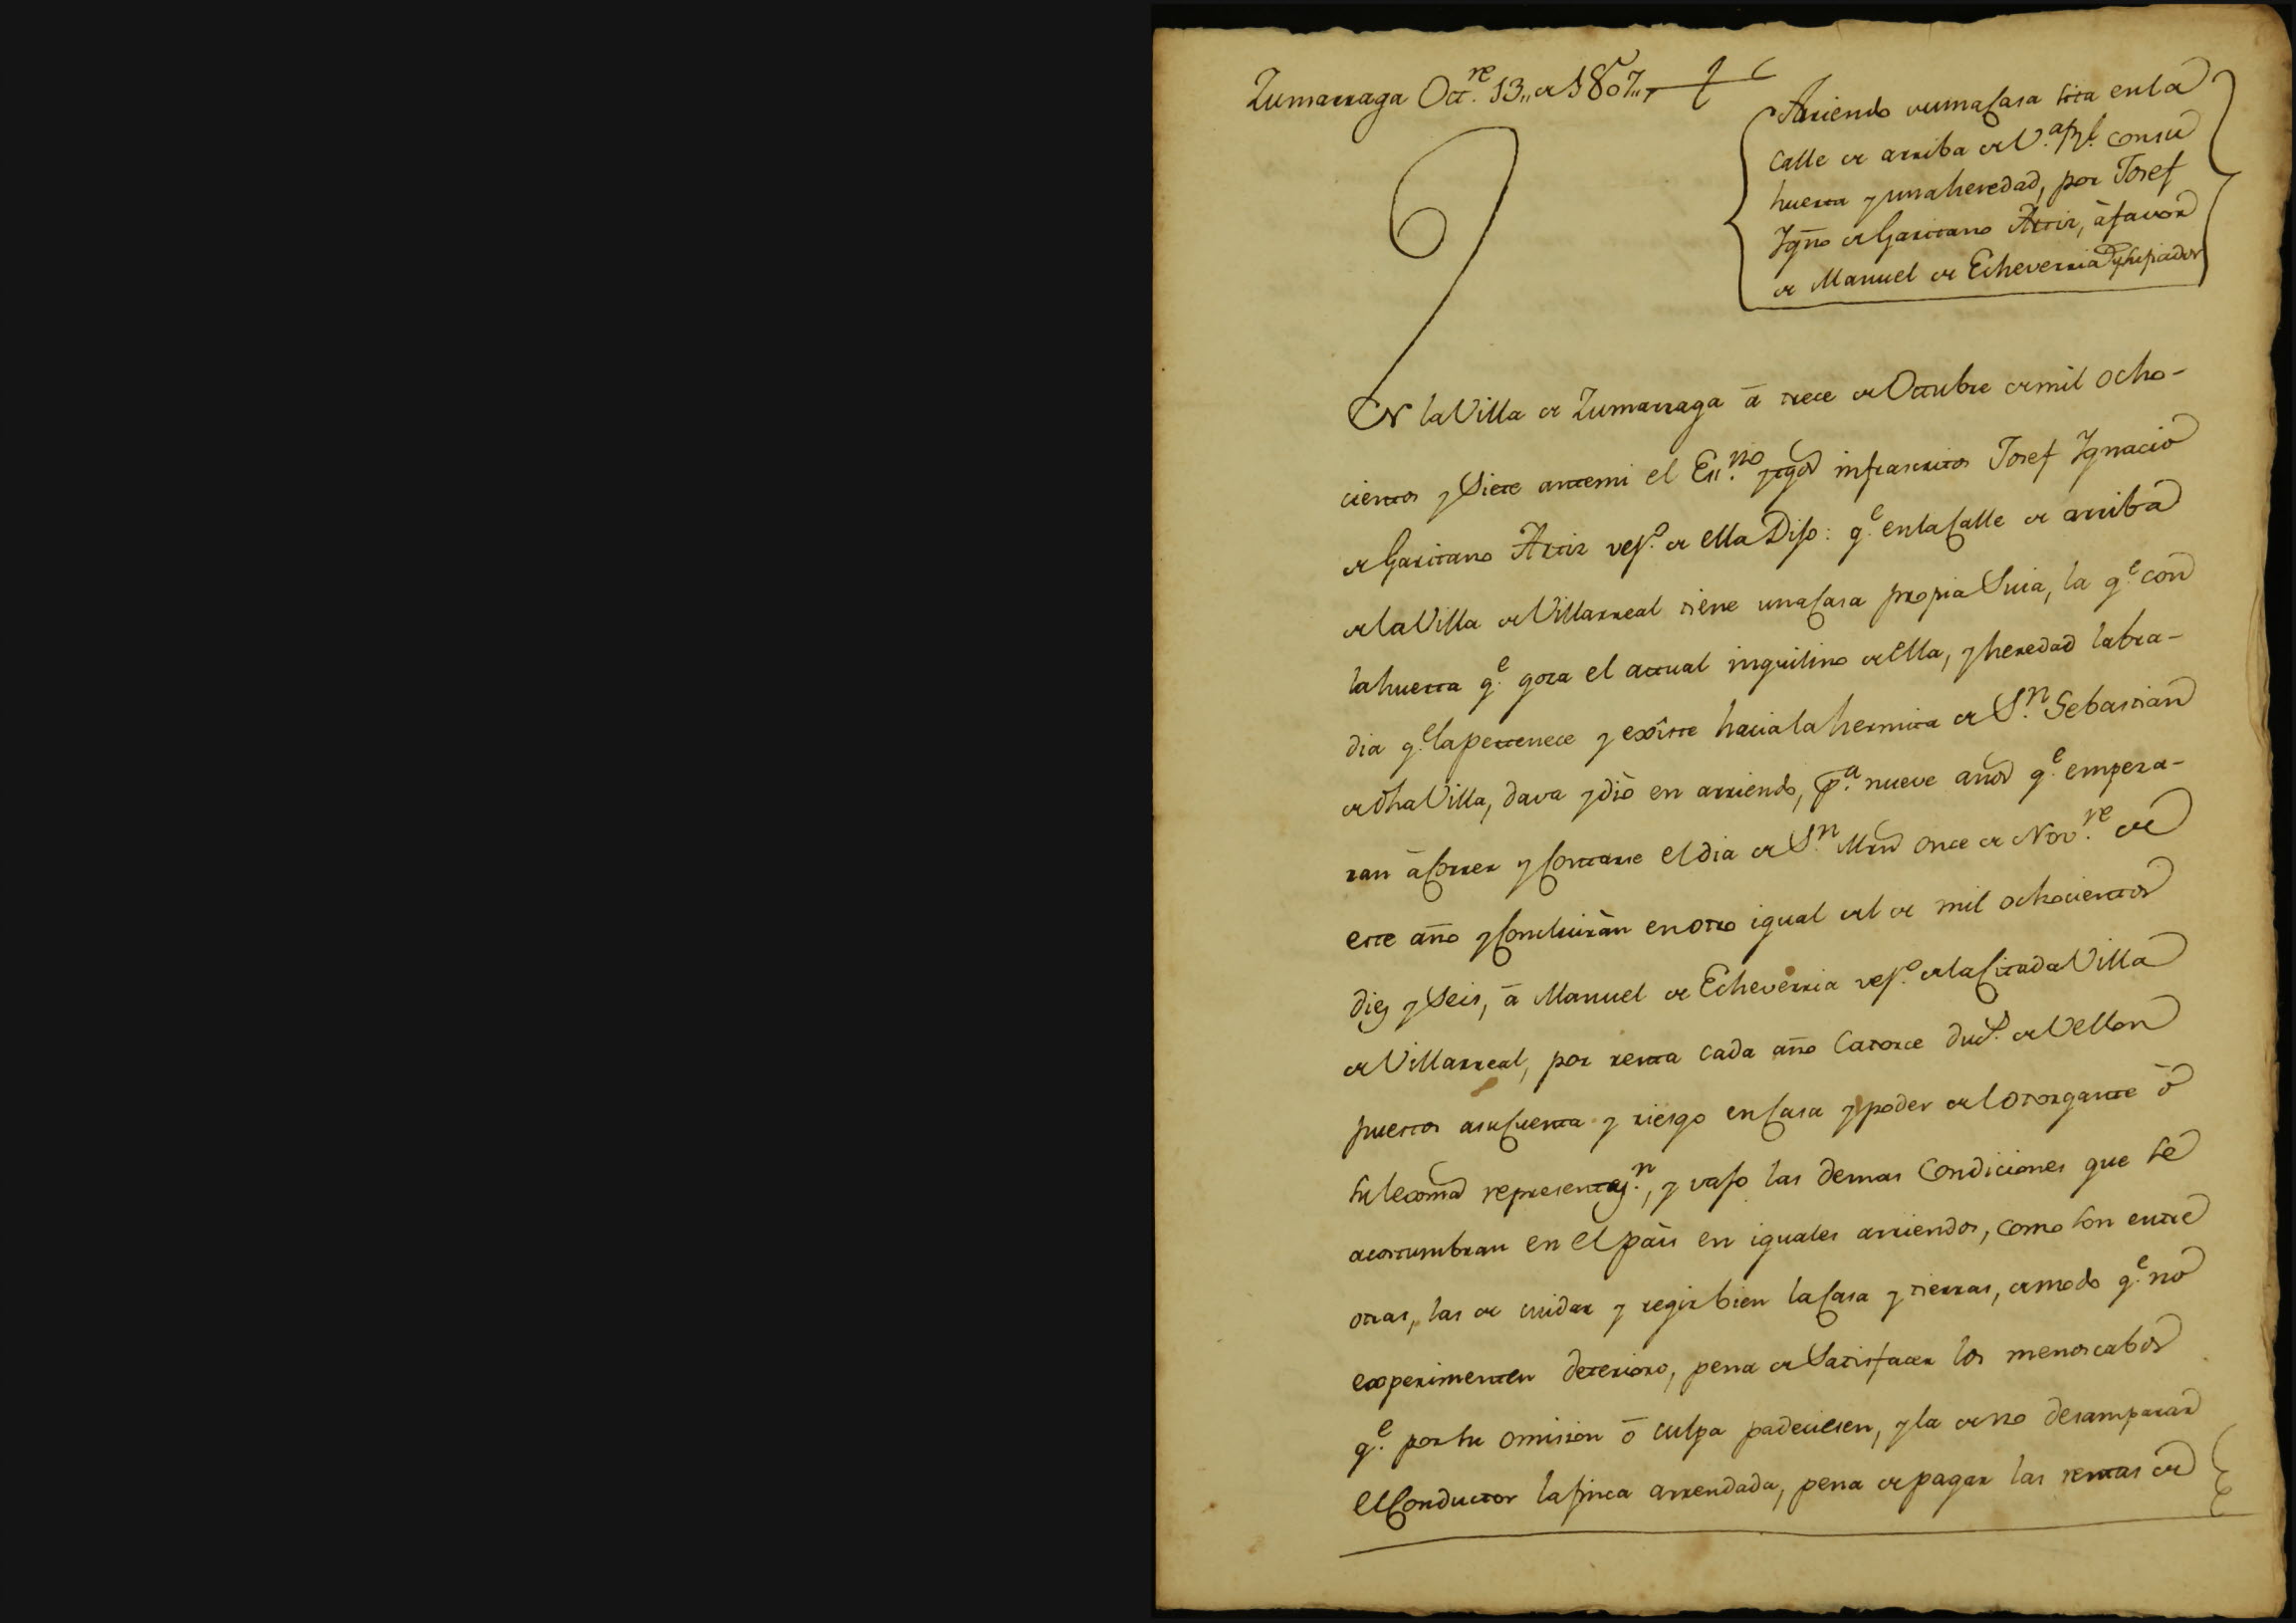 Zumarraga Oct.re 13,, de 1807,,
Arriendo de una Casa sita en la
Calle de arriba de V.a Rl. con su
huerta y una heredad, por Josef
Ygño de Garitano Artiz, à favor
de Manuel de Echeverria
En la Villa de Zumarraga ā trece de Octubre de mil ocho-
cientos y Siete ante mi el Es.no y tgos infrascritos Josef Ygnacio
de Garitano Artiz vez.o de ella Dijo: q.e en la Calle de arriba
de la Villa de Villarreal tiene una Casa propia Suia, la q.e con
la huerta q.e goza el actual inquilino de ella, y heredad labra-
dia q.e la pertenece y exîste hacia la hermita de S.n Sebastian
de dha Villa, dava y diò en arriendo, p.a nueve años q.e empeza-
ran à Correr y Contarse el dia de S.n Mrn once de Nov.re de
este año y Concluiràn en otro igual del de mil ochocientos
diez y Seis, ā Manuel de Echeverria vez.o de la Citada Villa
de Villarreal, por renta cada año Catorce duc.s de Vellon
puestos a su Cuenta y riesgo en Casa y poder del otorgante ō
su lexma representaz.n, y vajo las demas Condiciones que se
acostumbran en el pàis en iguales arriendos, como son entre
otras, las de cuidar y regir bien la Casa y tierras, de modo q.e no
experimenten deterioro, pena de Satisfacer los menoscabos
q.e por su omision ō culpa padeciesen, y la de no desamparar
el Conductor la finca arrendada, pena de pagar las rentas de